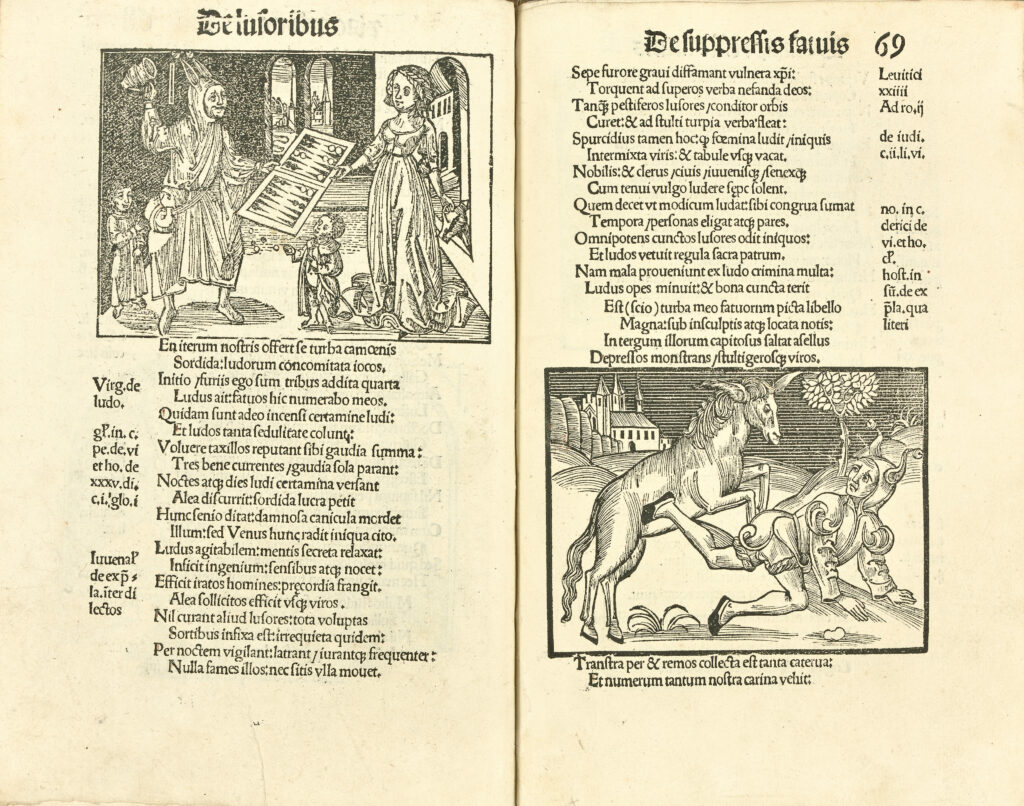 De lusoribus
En iterum nostris offert se turba camœnis
Sordida: ludorum concomitata iocos.
Virg. de
ludo.
Initio / furiis ego sum tribus addita quarta
Ludus ait: fatuos hic numerabo meos.
Quidam sunt adeo incensi certamine ludi:
gľ. in. c.
pe. de. vi
et ho. de
xxxv. di.
c. i. glo. i
Et ludos tanta sedulitate colunt:
Voluere taxillos reputant sibi gaudia summa:
Tres bene currentes / gaudia sola parant:
Noctes atqꝫ dies ludi certamina versant
Alea discurrit: sordida lucra petit
Hunc senio ditat: damnosa canicula mordet
Illum: sed Venus hunc radit iniqua cito.
Iuuenaľ
de exp̄
la. iter di
lectos
Ludus agitabilem: mentis secreta relaxat:
Inficit ingenium: sensibus atqꝫ nocet:
Efficit iratos homines: pręcordia frangit.
Alea sollicitos efficit vsqꝫ viros.
Nil curant aliud lusores: tota voluptas
Sortibus infixa est: irrequieta quidem:
Per noctem vigilant: latrant / iurantqꝫ frequenter:
Nulla fames illos: nec sitis vlla mouet.
De suppressis fatuis 69
Sepe furore graui diffamant vulnera xp̄i:
Torquent ad superos verba nefanda deos:
Tanqꝫ pestiferos lusores / conditor orbis
Curet: & ad stulti turpia verba fleat:
Leuitici
xxiiii
Ad ro. ij
Spurcidius tamen hoc: qꝫ fœmina ludit / iniquis
Intermixta viris: & tabule vsqꝫ vacat.
de iudi.
c. ii. li. vi.
Nobilis: & clerus / ciuis / iuuenisqꝫ / senexqꝫ
Cum tenui vulgo ludere sępe solent.
Quem decet vt modicum ludat: sibi congrua sumat
Tempora / personas eligat atqꝫ pares.
Omnipotens cunctos lusores odit iniquos:
Et ludos vetuit regula sacra patrum.
no. in c.
clerici de
vi. et ho.
cľ.
host. in
sū. de ex
p̄la. qua
literi
Nam mala proueniunt ex ludo crimina multa:
Ludus opes minuit: & bona cuncta terit
Est (scio) turba meo fatuornm picta libello
Magna: sub insculptis atqꝫ locata notis:
In tergum illorum capitosus saltat asellus
Depressos monstrans / stultigerosqꝫ viros.
Transtra per & remos collecta est tanta caterua:
Et numerum tantum nostra carina vehit: